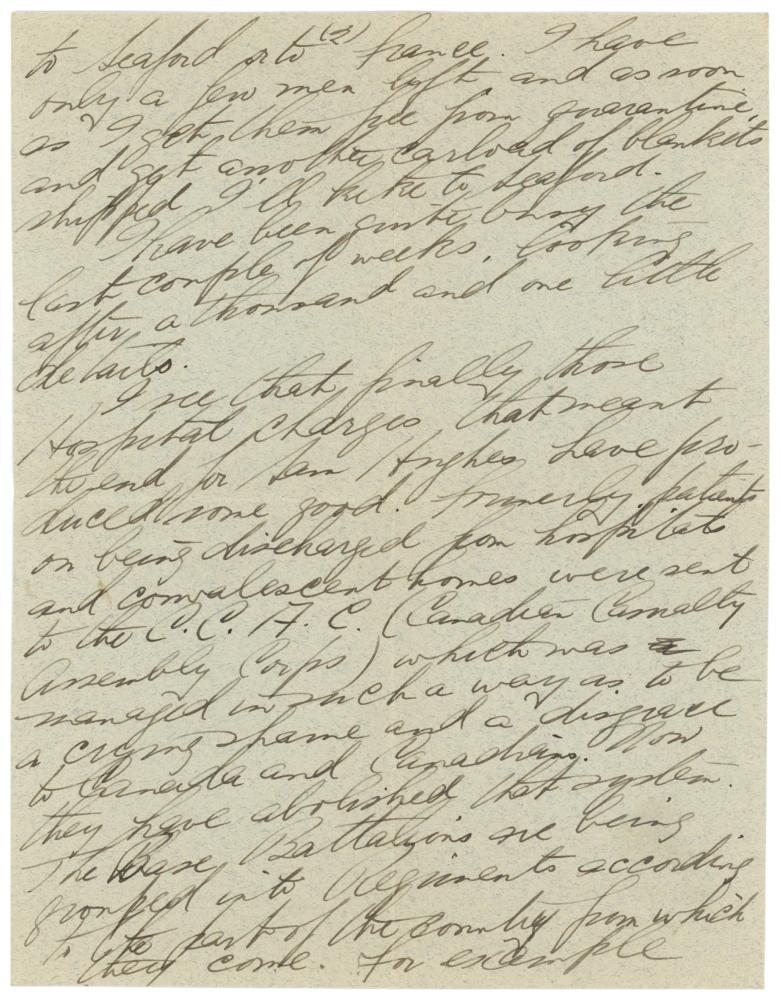 (3)
to Seaford or to France. I have
only a few men left and as soon
as I get them free from quarantine
and get another carload of blankets
shipped I'll hike to Seaford.
I have been quite busy the
last couple of weeks, looking
after a thousand and one little
details.
I see that finally those
Hospital charges that meant
the end for Sam Hughes have pro-
duced some good. Formerly patients
on being discharged from hospitals
and convalescent homes were sent
to the C. C. A. C. (Canadian Casualty
Assembly Corps) which was
managed in such a way as to be
a crying shame and a disgrace
to Canada and Canadians. Now
they have abolished that system.
The Base Battalions are being
grouped into Regiments according
to the part of the country from which
they come. For example